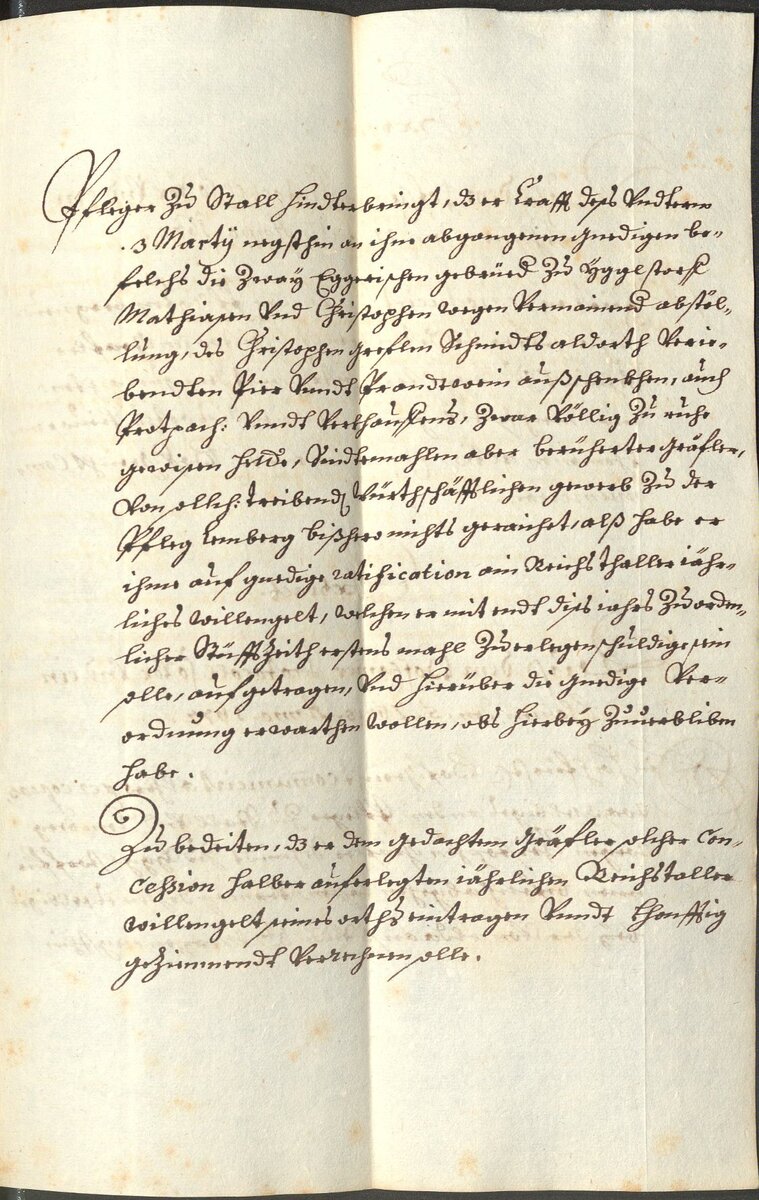 Pfleger Zu Stall hindterbringt, dz er Crafft deß Vnderm
.3 Martÿ negsthin an ihme abgangenen gnedigen be-
felchs die Zway Eggerischen gebrüed Zu Ygglstorf
Mathiasen Vnd Christophen wegen Vermainend abstöl-
lung, des Christophen Greflen Schmidts aldorth Verie-
bendten Pier Vnndt Prandtwein außschenkhen, auch
Protpach: Vnndt Verkhauffens, Zwar Völlig Zu ruhe
gewisen hette, Sindtemahlen aber berüherter Gräfler,
Von sollch: treibend Würthschäfftlichen gewerb Zu der
Pfleg Lemberg bißhero nichts geraichet, alß habe er
ihme auf gnedige ratification ain Reichsthaller iähr-
liches willengelt, welchen er mit endt diß iahrs Zu orden-
licher Stüfftszeith erstens mahl Zu erlegen schuldig sein
solle, aufgetragen, Vnd hierüber die gnedige Ver-
ordnung erwarthen wollen, obs hierbey Zuuerbliben
habe.
Zu bedeiten, dz er dem gedachtem Gräfler solcher Con-
cession halber auferlegten iährlichen Reichstaller
willengelt seines orths eintragen Vnndt khonfftig
geziemmendt Verrechnen solle.